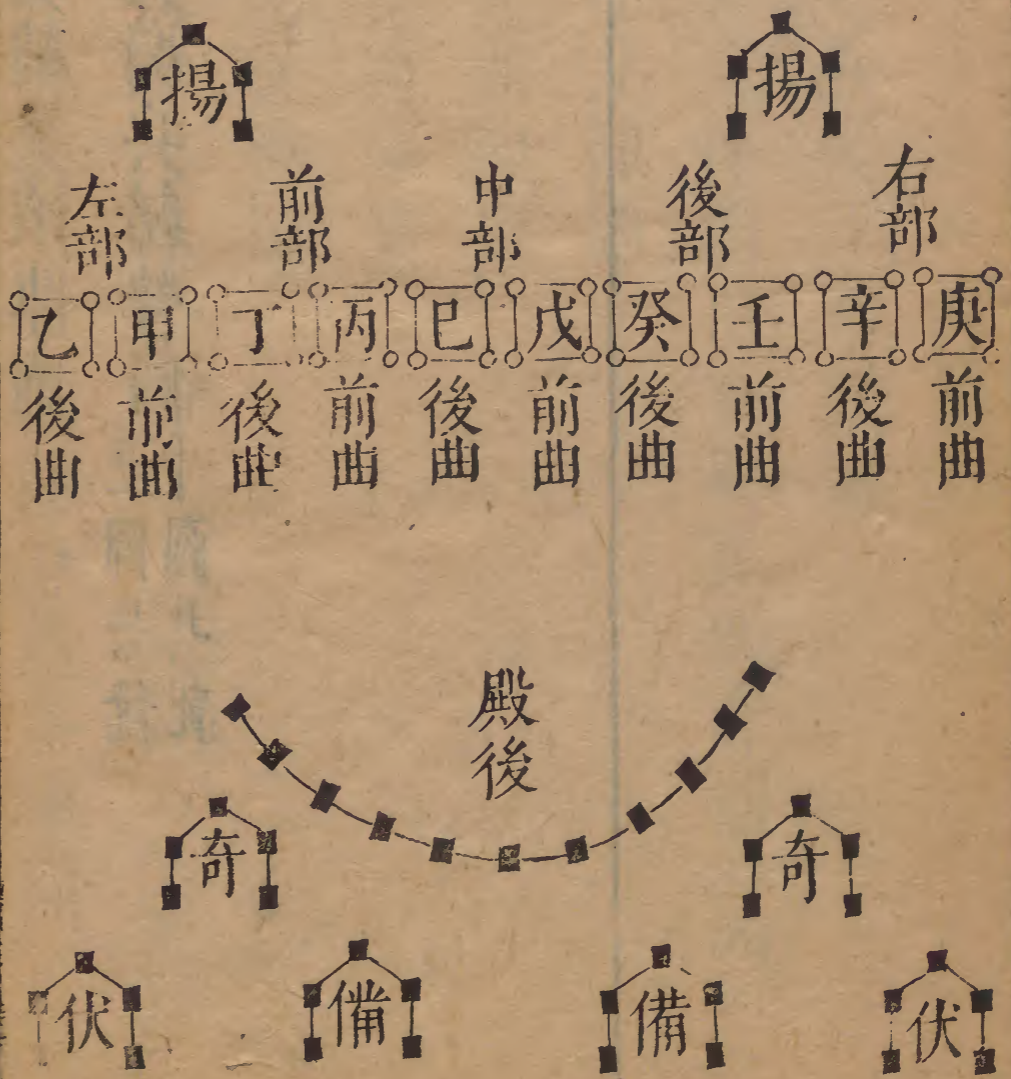 揚
揚
右部
後部
中部
前部
左部
庚
辛
壬
癸
戊
巳
丙
丁
甲
乙
前曲
後曲
前曲
後曲
前曲
後曲
前曲
後曲
前曲
後曲
殿後
奇
奇
伏
備
備
伏